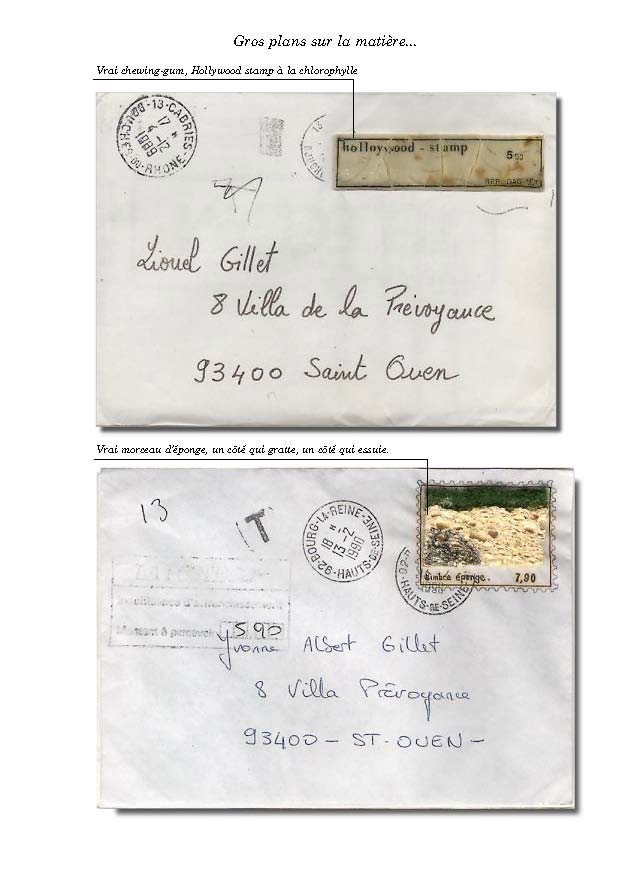 Gros plans sur la matière...
Vrai chewing-gum, Hollywood stamp à la chlorophylle
13-CABRIES-
BOUCHES DU RHONE
17 H
4-12
1989
13
BOUCHE
holloywood - stamp
5,50
Lionel Gillet
8 Villa de la Prévoyance
93400 Saint Ouen
Vrai morceau d'éponge, un côté qui gratte, un côté qui essuie.
13
T
92-BOURG-LA-REINE-
HAUTS-DE-SEINE
18 H
13-2
1990
timbre éponge.
7,90
HAUTS-DE-SEINE
insuffisance d'affranchissement
Montant à percevoir
5,90
Yvonne Albert Gillet
8 Villa Prévoyance
93400 - ST. OUEN -